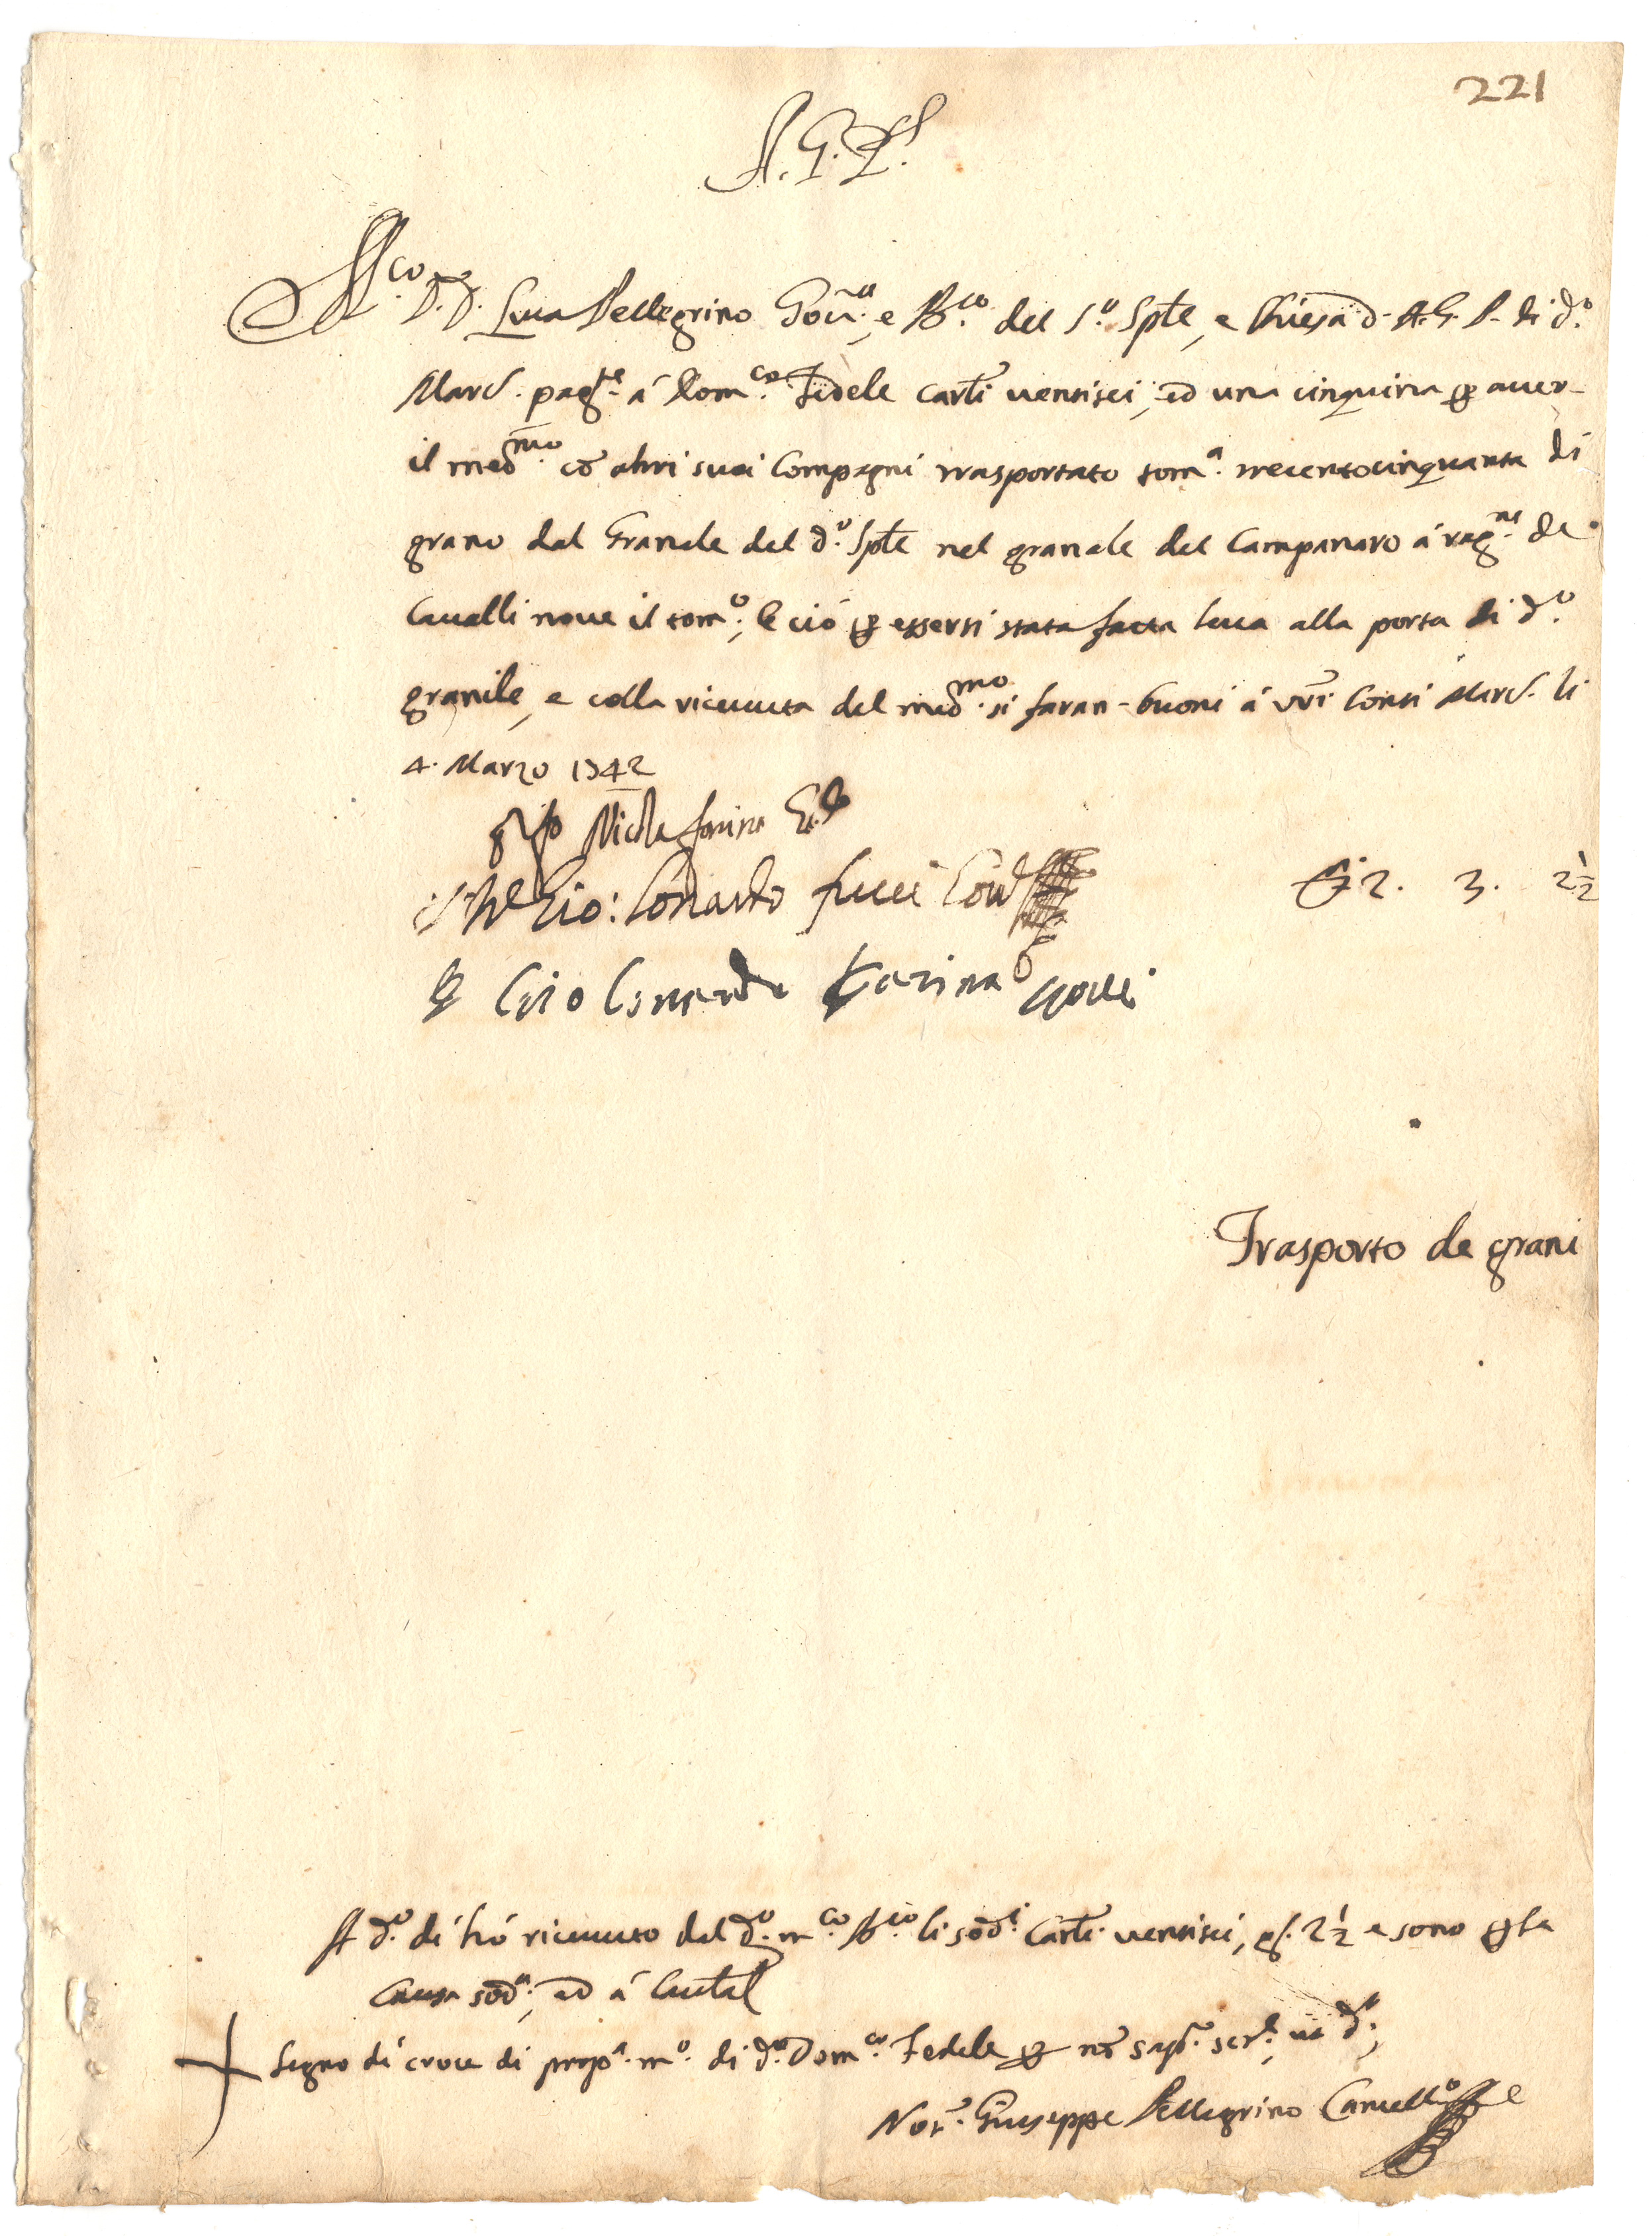 221
A. G. P.
M.co D.D. Luca Pellegrino Gov.e, e B.co del S.o Sp̄le, e Chiesa d- A. G. P. di d.o
Marcl. pag.te á Dom.co Fedele Carlī ventisei, ed una cinquina per aver-
il med.mo cō altri suoi Compagni trasportato tom.a trecentocinquanta di
grano dal Granale del d.o Sp̄le nel granale del Campanaro á rag.ne de
Cavalli nove il tom.o, e ció per essersi stata fatta leva alla porta di d.o
granile, e colla ricevuta del med.mo si faran- buoni á vr̄i Conti Marcl. li
4. Marzo 1742
Nicola Farina
Gio: Lonardo Fucci
Ciro Lonardo Farina
2. 3. 2½
Trasporto de grani
A d.o dí hó ricevuto dal d.o m.co B.co li sod.i Carlī ventisei, g. 2½ e sono per la
Causa sod.a, ed á Cautel
Segno di croce di prop.a m.o di d.o Dom.co Fedele per nō sap.e scr.e, ut d.r,
Not.r Giuseppe Pellegrino Cancell.o